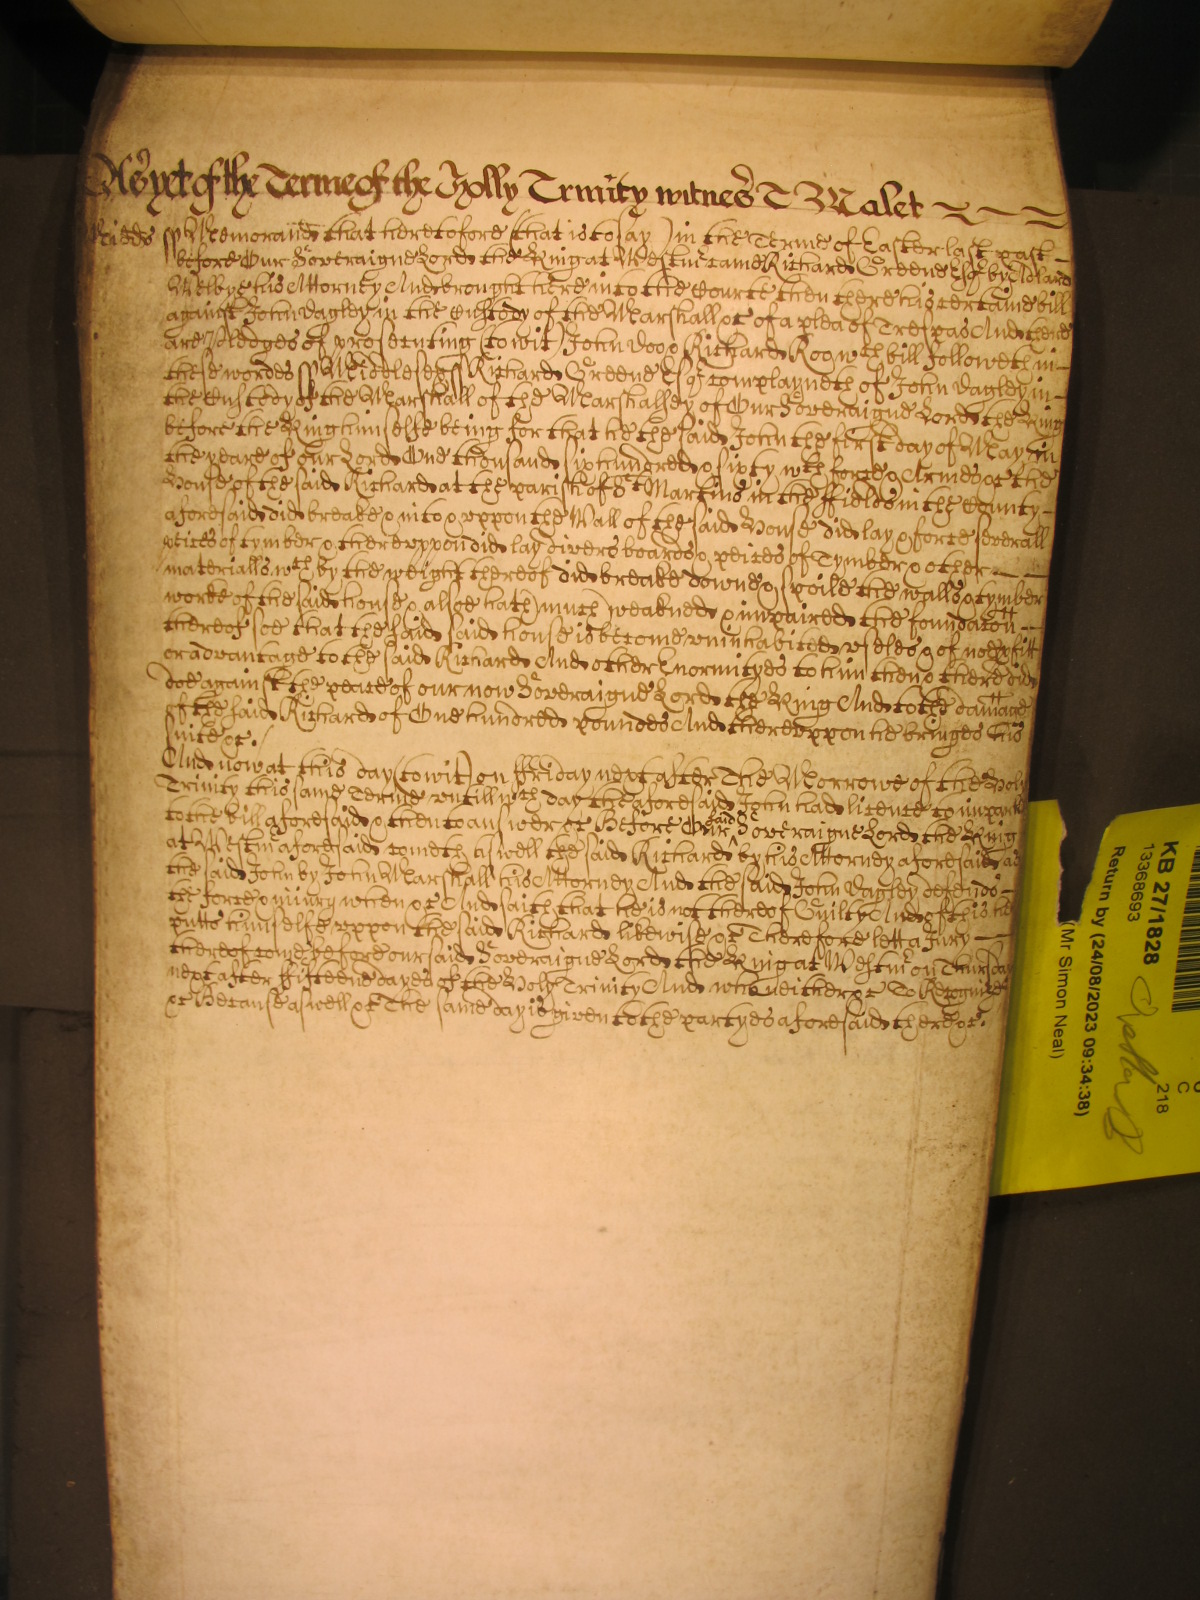 As yet of the Terme of the Holly Trinity witnes T Malet
Midds ss Memorand that heretofore (that is to say) in the Terme of Easter last past
before Our Soveraigne Lord the King at Westmr came Richard Greene Esqr by
Welby his Attorney And brought here into the Courte then there his certaine bill
against John Vagley in the Custody of the Marshall &c of a plea of Trespas And there
are Pledges of prosecuting (to wit) John Doo & Richard Roo wch bill followeth in
these wordes ss Middlesex ss Richard Greene Esqr complayneth of John Vagley in
the Custody of the Marshall of the Marshalsey of Our Soveraigne Lord the King
before the King himselfe being for that he the said John the first day of May in
the yeare of our Lord One thousand six hundred & sixty wth force & Armes &c the
House of the said Richard at the parish of St Martins in the ffields in the County
aforesaid did breake & into & uppon the Wall of the said House did lay & force severall
peices of tymber & thereuppon did lay divers boards & peices of Tymber & other
materialls wch by the weight thereof did breake downe & spoile the walls & tymber
worke of the said house & alsoe hath much weakned & impaired the foundacon
thereof soe that the said said house is become uninhabited useles & of noe pfitt
or advantage to the said Richard And other Enormityes to him then & there did
doe against the peace of our now Soveraigne Lord the King And to the damage
of the said Richard of One hundred poundes And thereuppon he bringes his
suite &c.
And now at this day (to wit) on ffriday next after The Morrowe of the Holy
Trinity this same Terme untill wch day the aforesaid John had licence to imparle
to the bill aforesaid & then to answer &c Before Our said Soveraigne Lord the King
at Westmr aforesaid cometh aswell the said Richard by his Attorney aforesaid as
the said John by John Marshall his Attorney And the said John Vagley defends
the force & iniury when &c And saith that he is not thereof Guilty And of this he
putts himselfe uppon the said Richard likewise &c Therefore lett a Jury
thereof come before our said Soveraigne Lord the King at Westmr on Thursday
next after fifteene dayes of the Holy Trinity And who neither &c To Recognize
&c Because aswell &c The same day is given to the partyes aforesaid there &c.
KB 27/1828
13368693
Return by (24/08/2023 09:34:38)
(Mr Simon Neal)
218
C